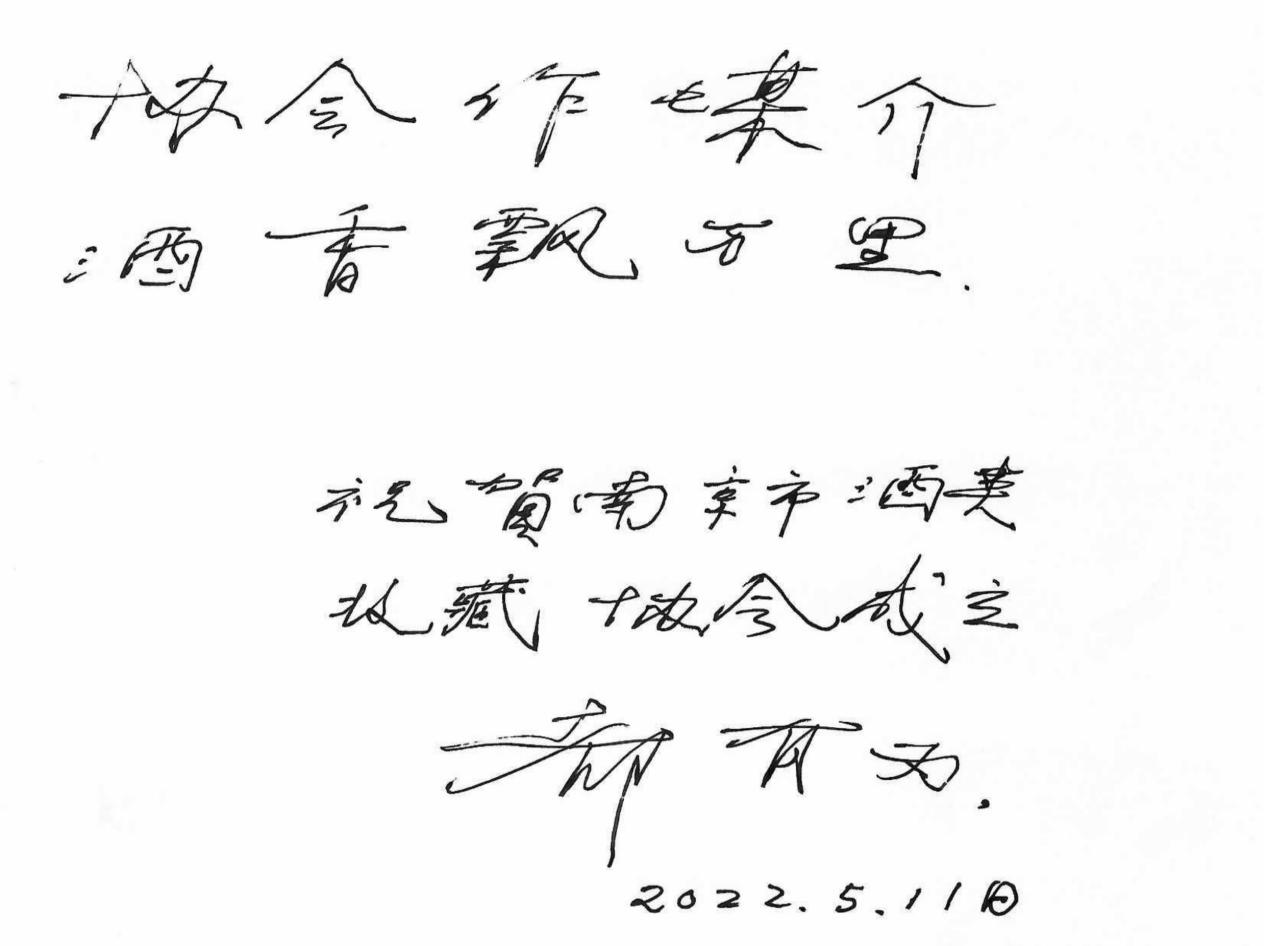 协会作媒介
酒香飘万里.
祝賀南京市酒类
收藏协会成立
都有为.
2022.5.11日